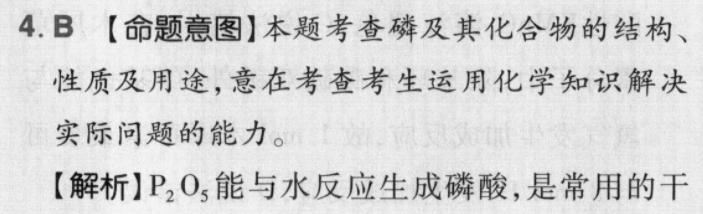 4. B 【命题意图】本题考查磷及其化合物的结构、
性质及用途,意在考查考生运用化学知识解决
实际问题的能力。
【解析】P₂O₅能与水反应生成磷酸,是常用的干